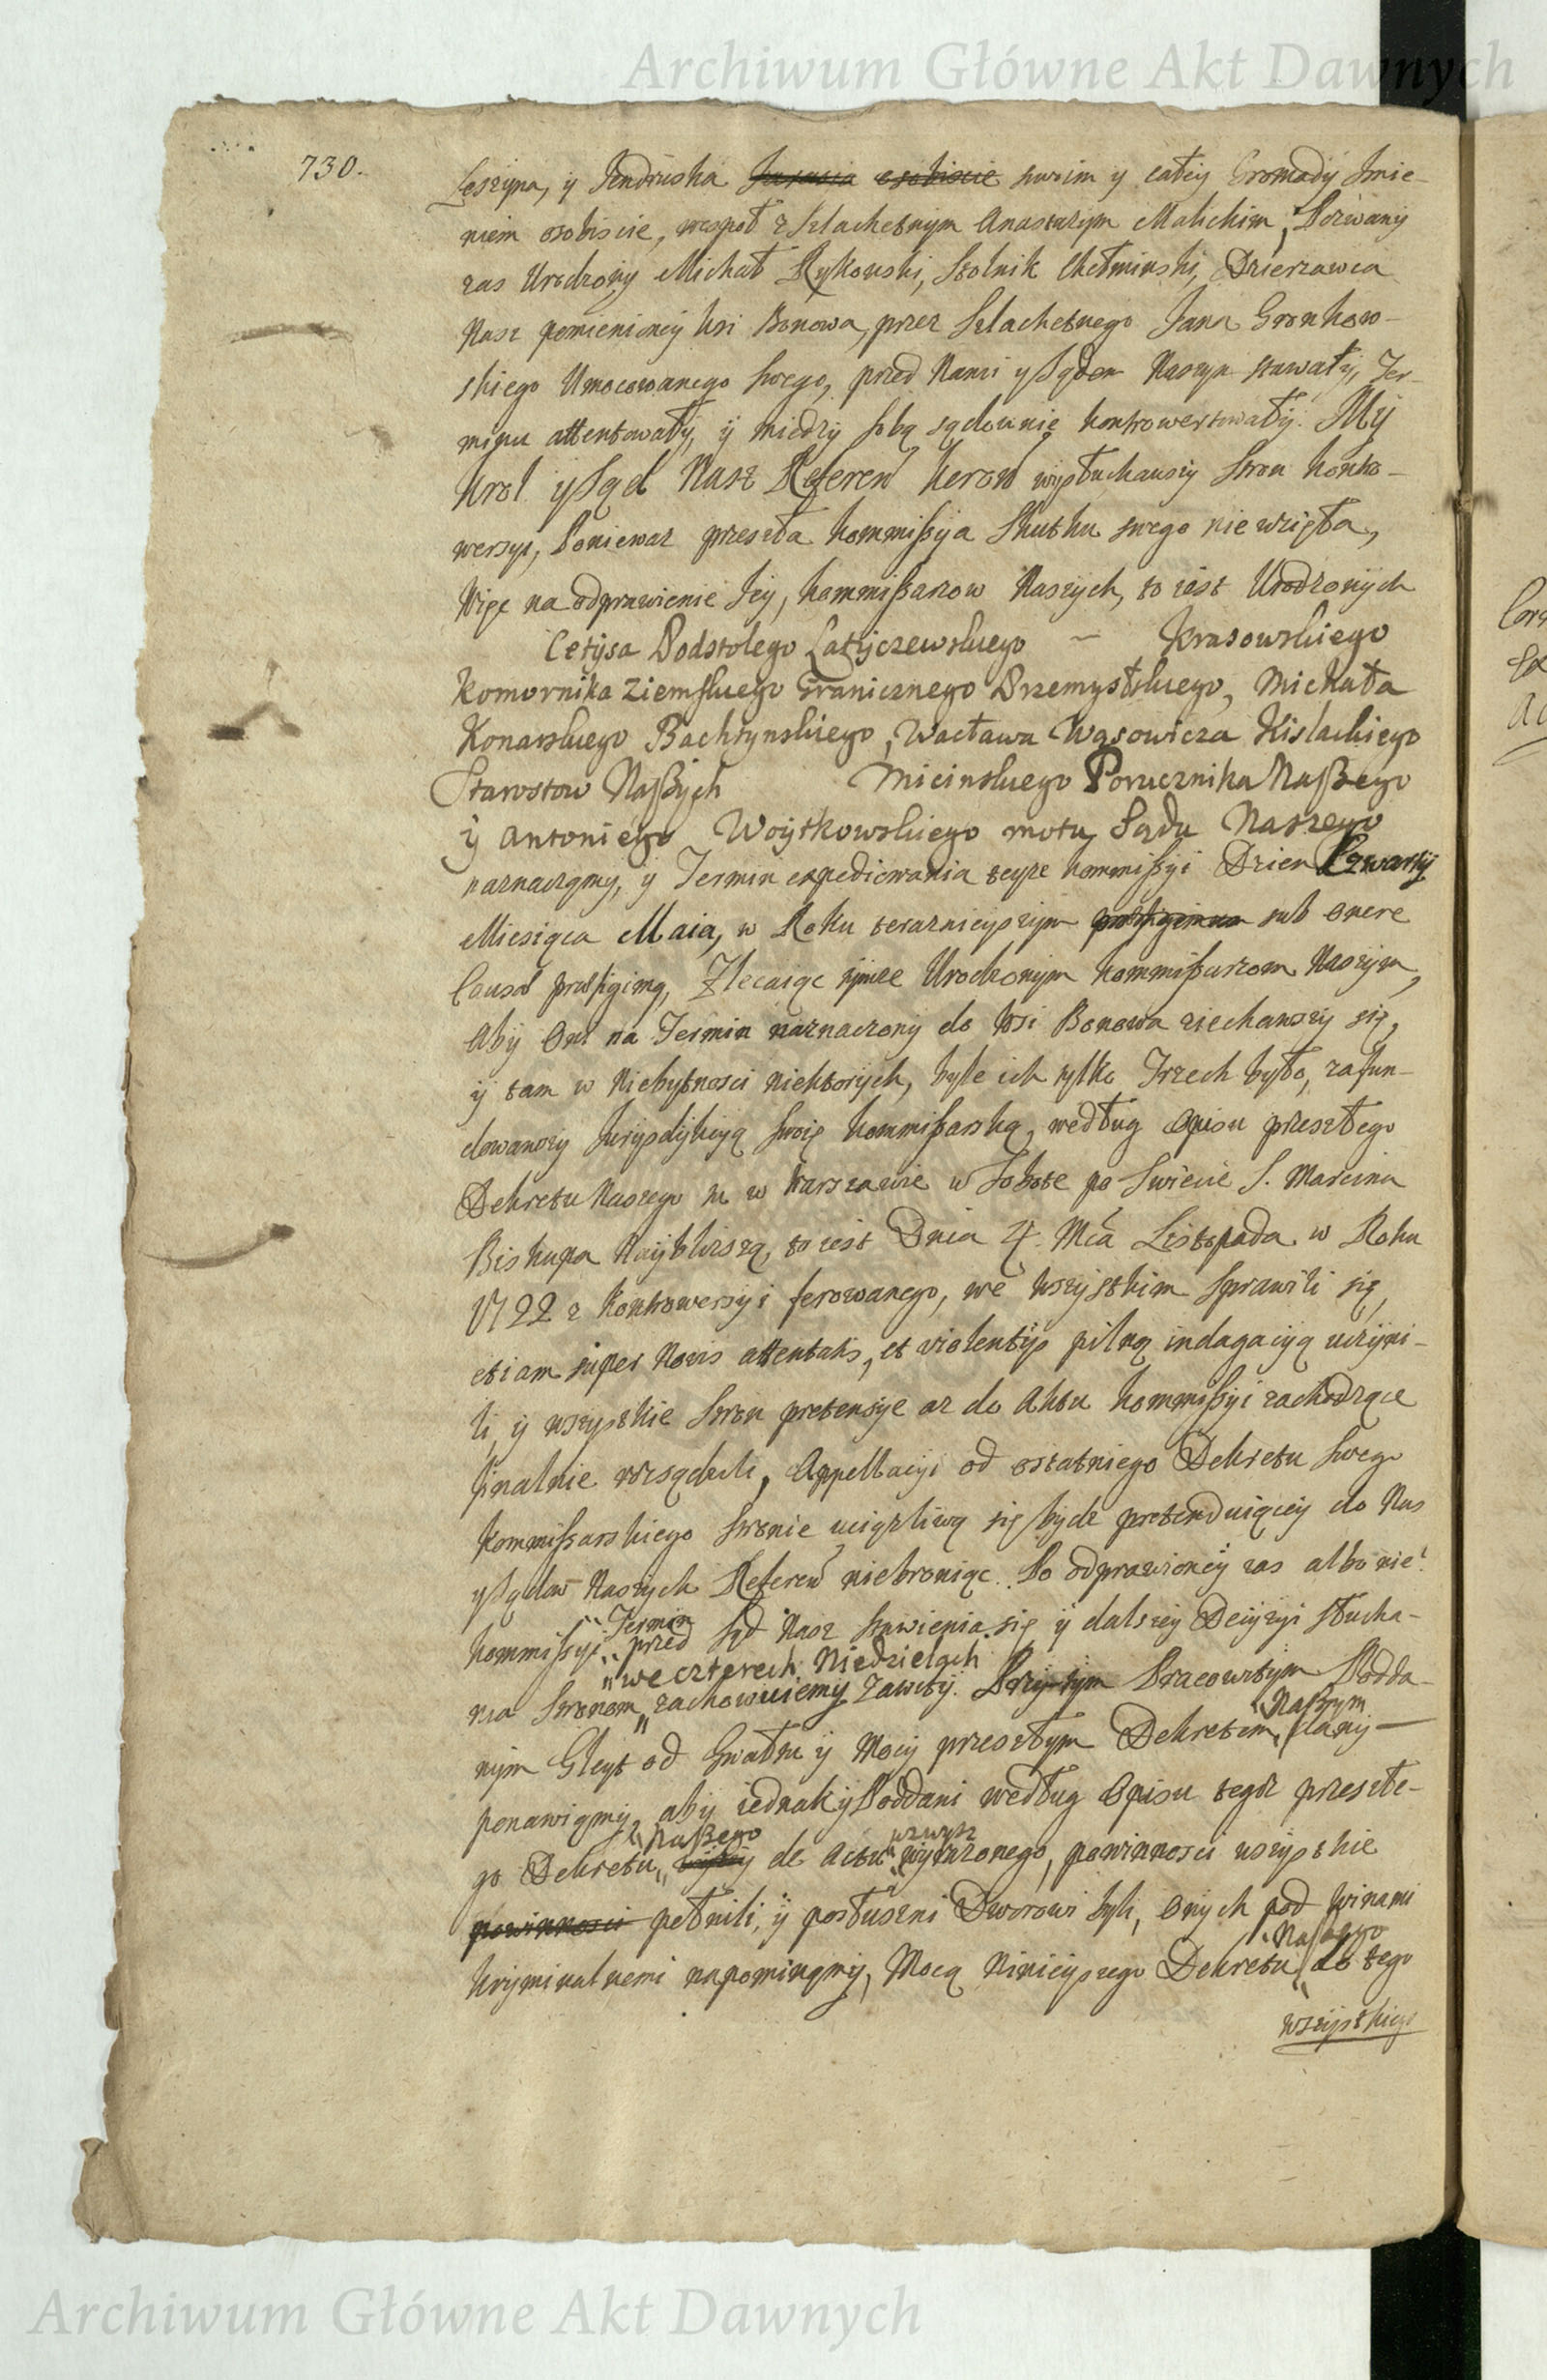 Archiwum Główne Akt Dawnych
730.
Leszyna, y Jendruska Jarasia osobiscie swoim y całey Gromady Jmie-
niem osobiscie, wespoł z Szlachetnym Anastazym Malickim, Pozwany
zas Urodzony Michał Rykowski, Stolnik Chełminski, Dzierzawca
Nasz pomienioney Wsi Bonowa, przez Szlachetnego Jana Gronkow-
skiego Umocowanego swego, przed Nami y Sądem Naszym stawały, Ter-
minu attentowały, y miedzy sobą sądownie kontrowertowały. My
Krol y Sąd Nasz Referen kerow wysłuchawszy Stron kontro-
wersyi, Poniewaz przeszła kommissya Skutku swego nie wzięła,
Więc na odprawienie Jey, kommissarzow Naszych, to iest Urodzonych
Cetysa Podstolego Latyczewskiego ~ Krasowskiego
Komornika Ziemskiego Granicznego Przemyslskiego, Michała
Konarskiego Bachtynskiego, Wacława Wąsowicza Kislackiego
Starostow Naszych Micinskiego Porucznika Naszego
y Antoniego Woytkowskiego motu Sądu Naszego
naznaczymy, y Termin expediowania teyze kommissyi Dzien Czwarty
Miesiąca Maia, w Roku teraznieyszym praefigimus sub onere
Causae praefigimy, Zlecaiąc tymze Urodzonym kommissarzom Naszym,
aby Oni na Termin naznaczony do Wsi Bonowa ziechawszy się,
y tam w Niebytnosci niektorych, byle ich tylko Trzech było, zafun-
dowawszy Jurysdykcyą swoię kommissarską, według Opisu przeszłego
Dekretu Naszego tu w Warszawie w Sobote po Swięcie S. Marcina
Biskupa Naybliszą, to iest Dnia 4. Mca Listopada w Roku
1722 z Kontrowersyi ferowanego, we wszystkim sprawili się,
etiam super Novis attentatis, et violentys pilną indagacyą uczyni-
li, y wszystkie Stron pretensye az do Aktu kommissyi zachodzące
finalnie rozsądzili, Appellacyi od ostatniego Dekretu swego
Kommissarskiego Stronie uciązliwą się bydz pretenduiącey do Nas
y Sądow Naszych Referen niebroniąc. Po odprawioney zas albo nie
Termin
kommissyi przed Sąd Nasz stawienia się y dalszey Decyzyi słucha-
we czterech Niedzielach
nia Stronom zachowuiemy Zawity. Przytym Pracowitym Podda-
Naszym
nym Gleyt od Gwałtu y Mocy przeszłym Dekretem dany
ponawiamy, aby iednak y Poddani według Opisu tegoz przeszłe-
Naszego wzwysz
go Dekretu de actu wyrazonego, powinnosci wszystkie
powinnosci pełnili, y posłuszni Dworowi byli, onych pod winami
Naszego
kryminalnemi napominamy, Mocą Ninieyszego Dekretu do tego
wszystkiego
Archiwum Główne Akt Dawnych